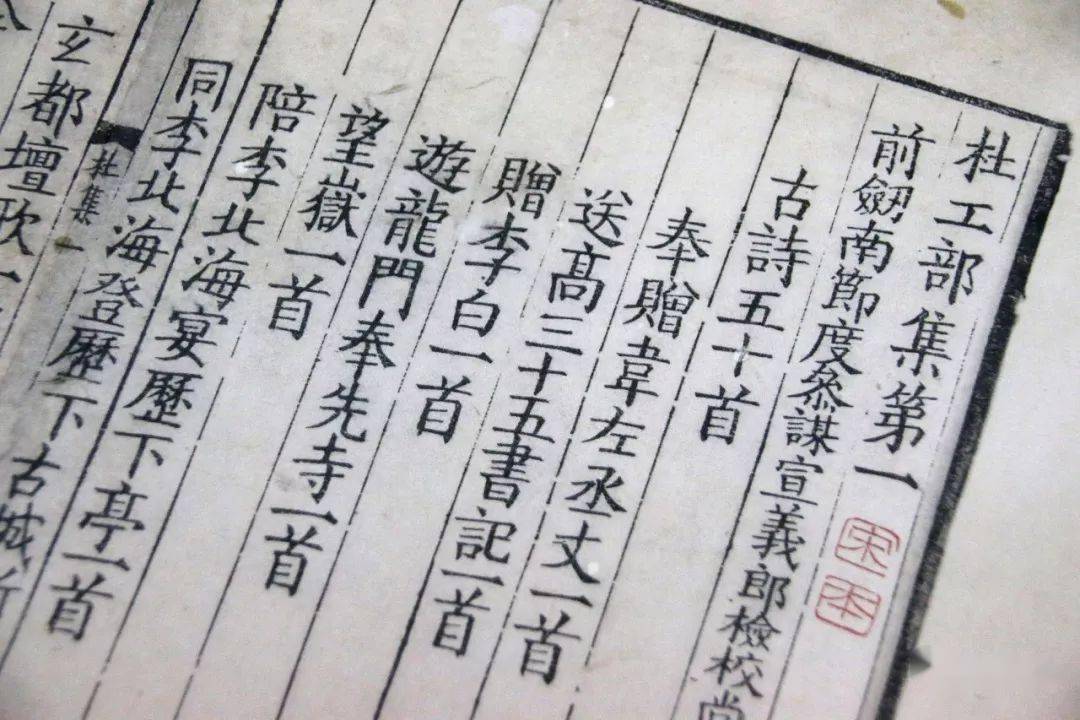 杜工部集第一
宋本
前劒南節度叅謀宣義郎檢校尚
古詩五十首
奉贈韋左丞丈一首
送高三十五書記一首
贈李白一首
遊龍門奉先寺一首
望嶽一首
陪李北海宴歷下亭一首
同李北海登歷下古城
杜集一
玄都壇歌一